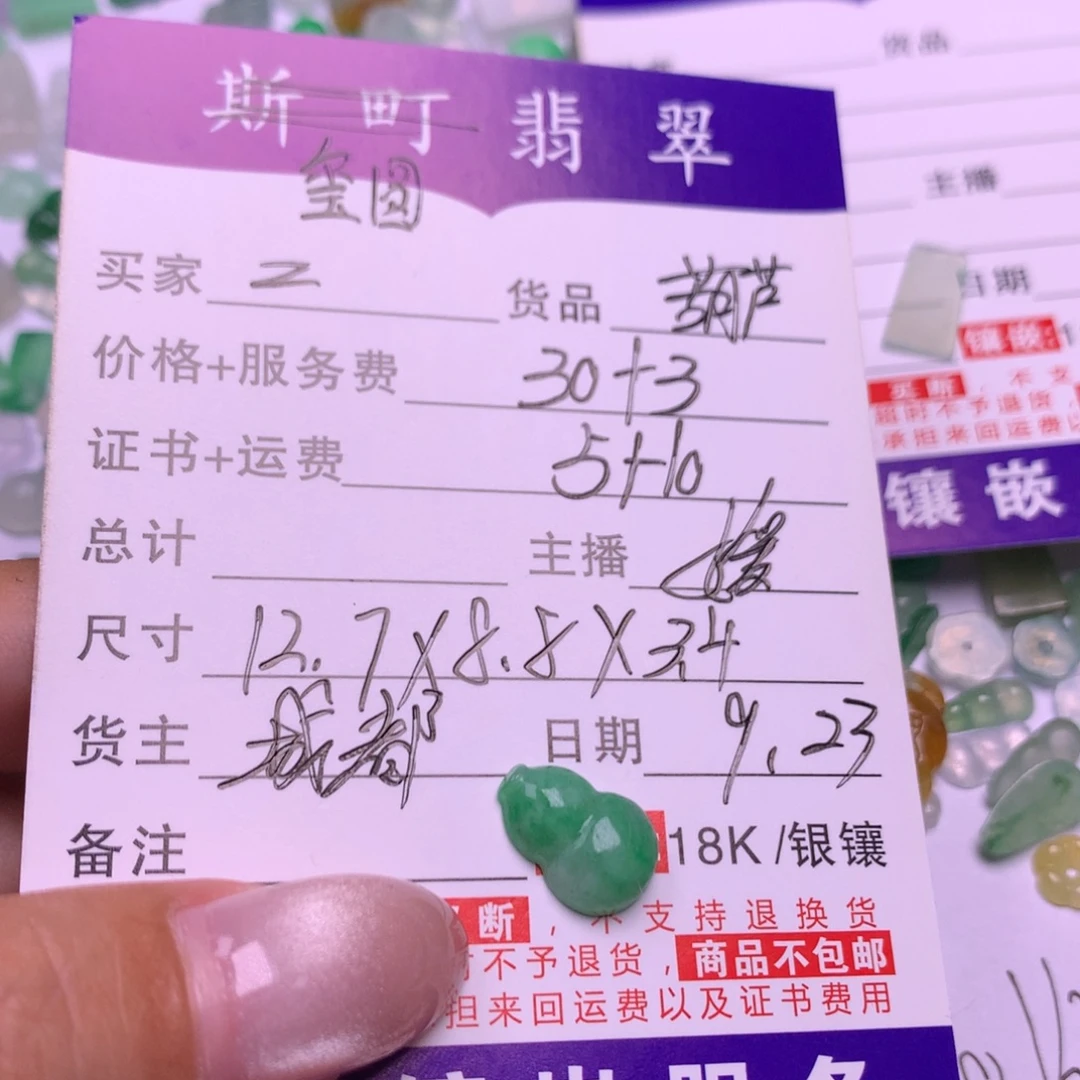 斯町翡翠
玺圆
买家 Z 货品 葫芦
价格+服务费 30+3
证书+运费 5+10
总计 主播 媛
尺寸 12.7X8.8X3.4
货主 成都 日期 9.23
备注 18K /银镶
断，不支持退换货
时不予退货，商品不包邮
担来回运费以及证书费用
镶嵌服务
货品
主播
日期
镶嵌:1
买断，不支
超时不予退货，
承担来回运费以
镶嵌